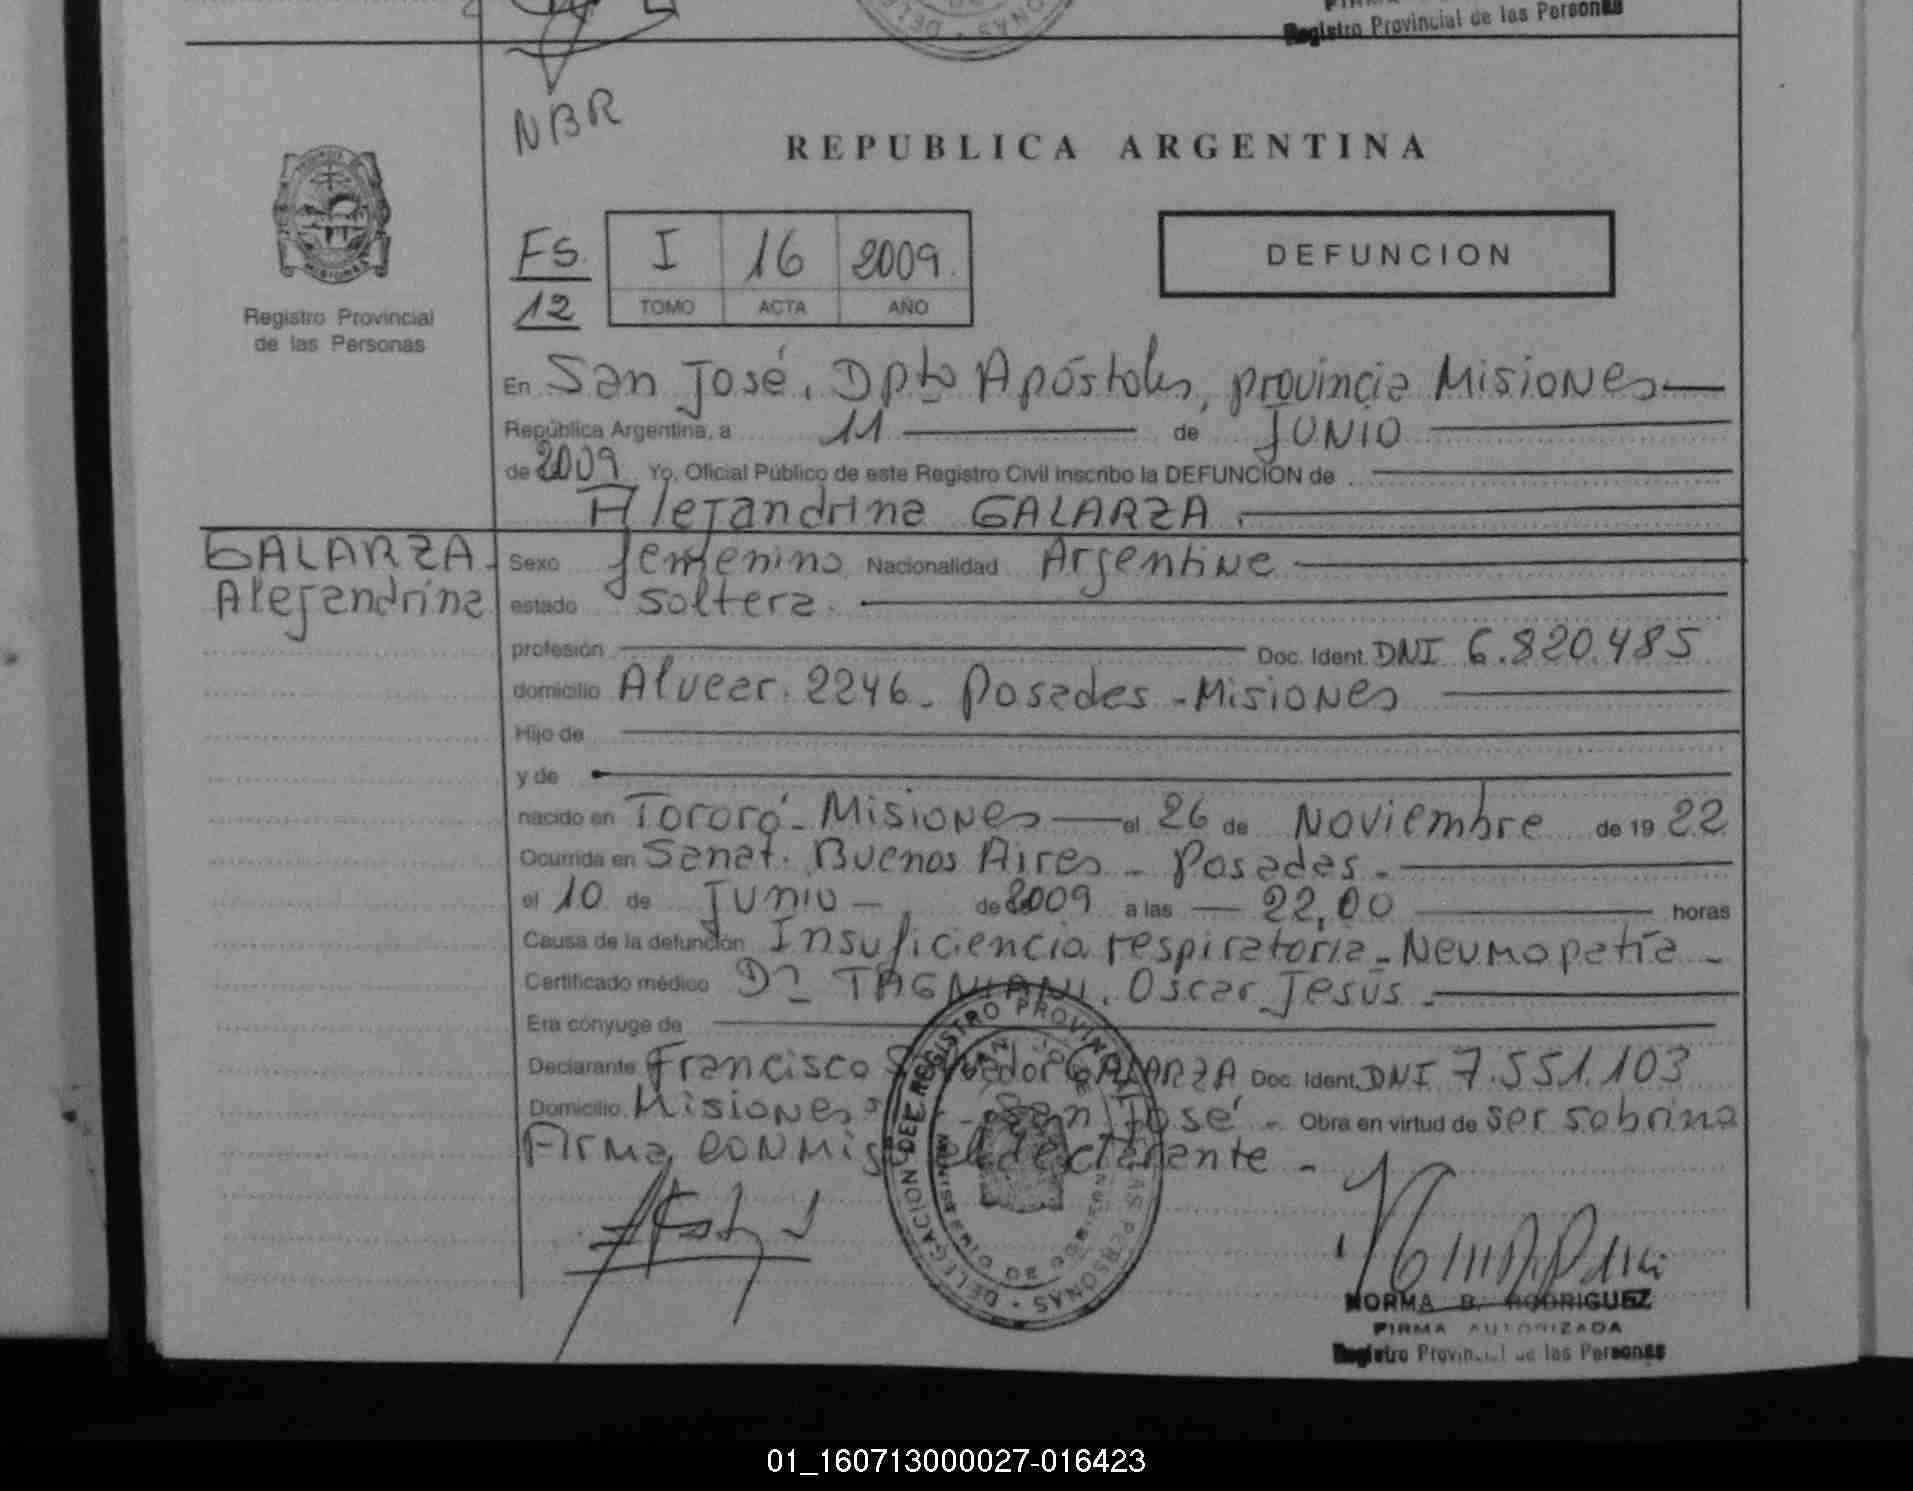 Registro Provincial de las Personas
NBR
REPUBLICA ARGENTINA
MISIONES
Registro Provincial
de las Personas
FS. 12
I 16 2009.
TOMO ACTA AÑO
DEFUNCION
En San José, Dpto Apóstoles, provincia Misiones
República Argentina, a 11 de JUNIO
de 2009 Yo, Oficial Público de este Registro Civil inscribo la DEFUNCION de
Alejandrina GALARZA.
GALARZA
Alejandrina
Sexo femenino Nacionalidad Argentina
estado soltera.
profesión Doc. Ident. DNI 6.820.485
domicilio Alvear. 2246- Posadas - Misiones
Hijo de
y de
nacido en Tororó- Misiones el 26 de Noviembre de 19 22
Ocurrida en Sanat. Buenos Aires - Posadas -
el 10 de Junio - de 2009 a las 22,00 horas
Causa de la defunción Insuficiencia respiratoria - Neumopatía -
Certificado médico Dr TAGNIANI. Oscar Jesús -
Era cónyuge de
Declarante Francisco Salvador GALARZA Doc. Ident. DNI 7.551.103
Domicilio Misiones - San José - Obra en virtud de ser sobrino
Firma conmigo el declarante -
DELEGACION DEL REGISTRO PROVINCIAL DE LAS PERSONAS
SAN JOSE
MINISTERIO DE GOBIERNO
NORMA B. RODRIGUEZ
FIRMA AUTORIZADA
Registro Provincial de las Personas
01_160713000027-016423